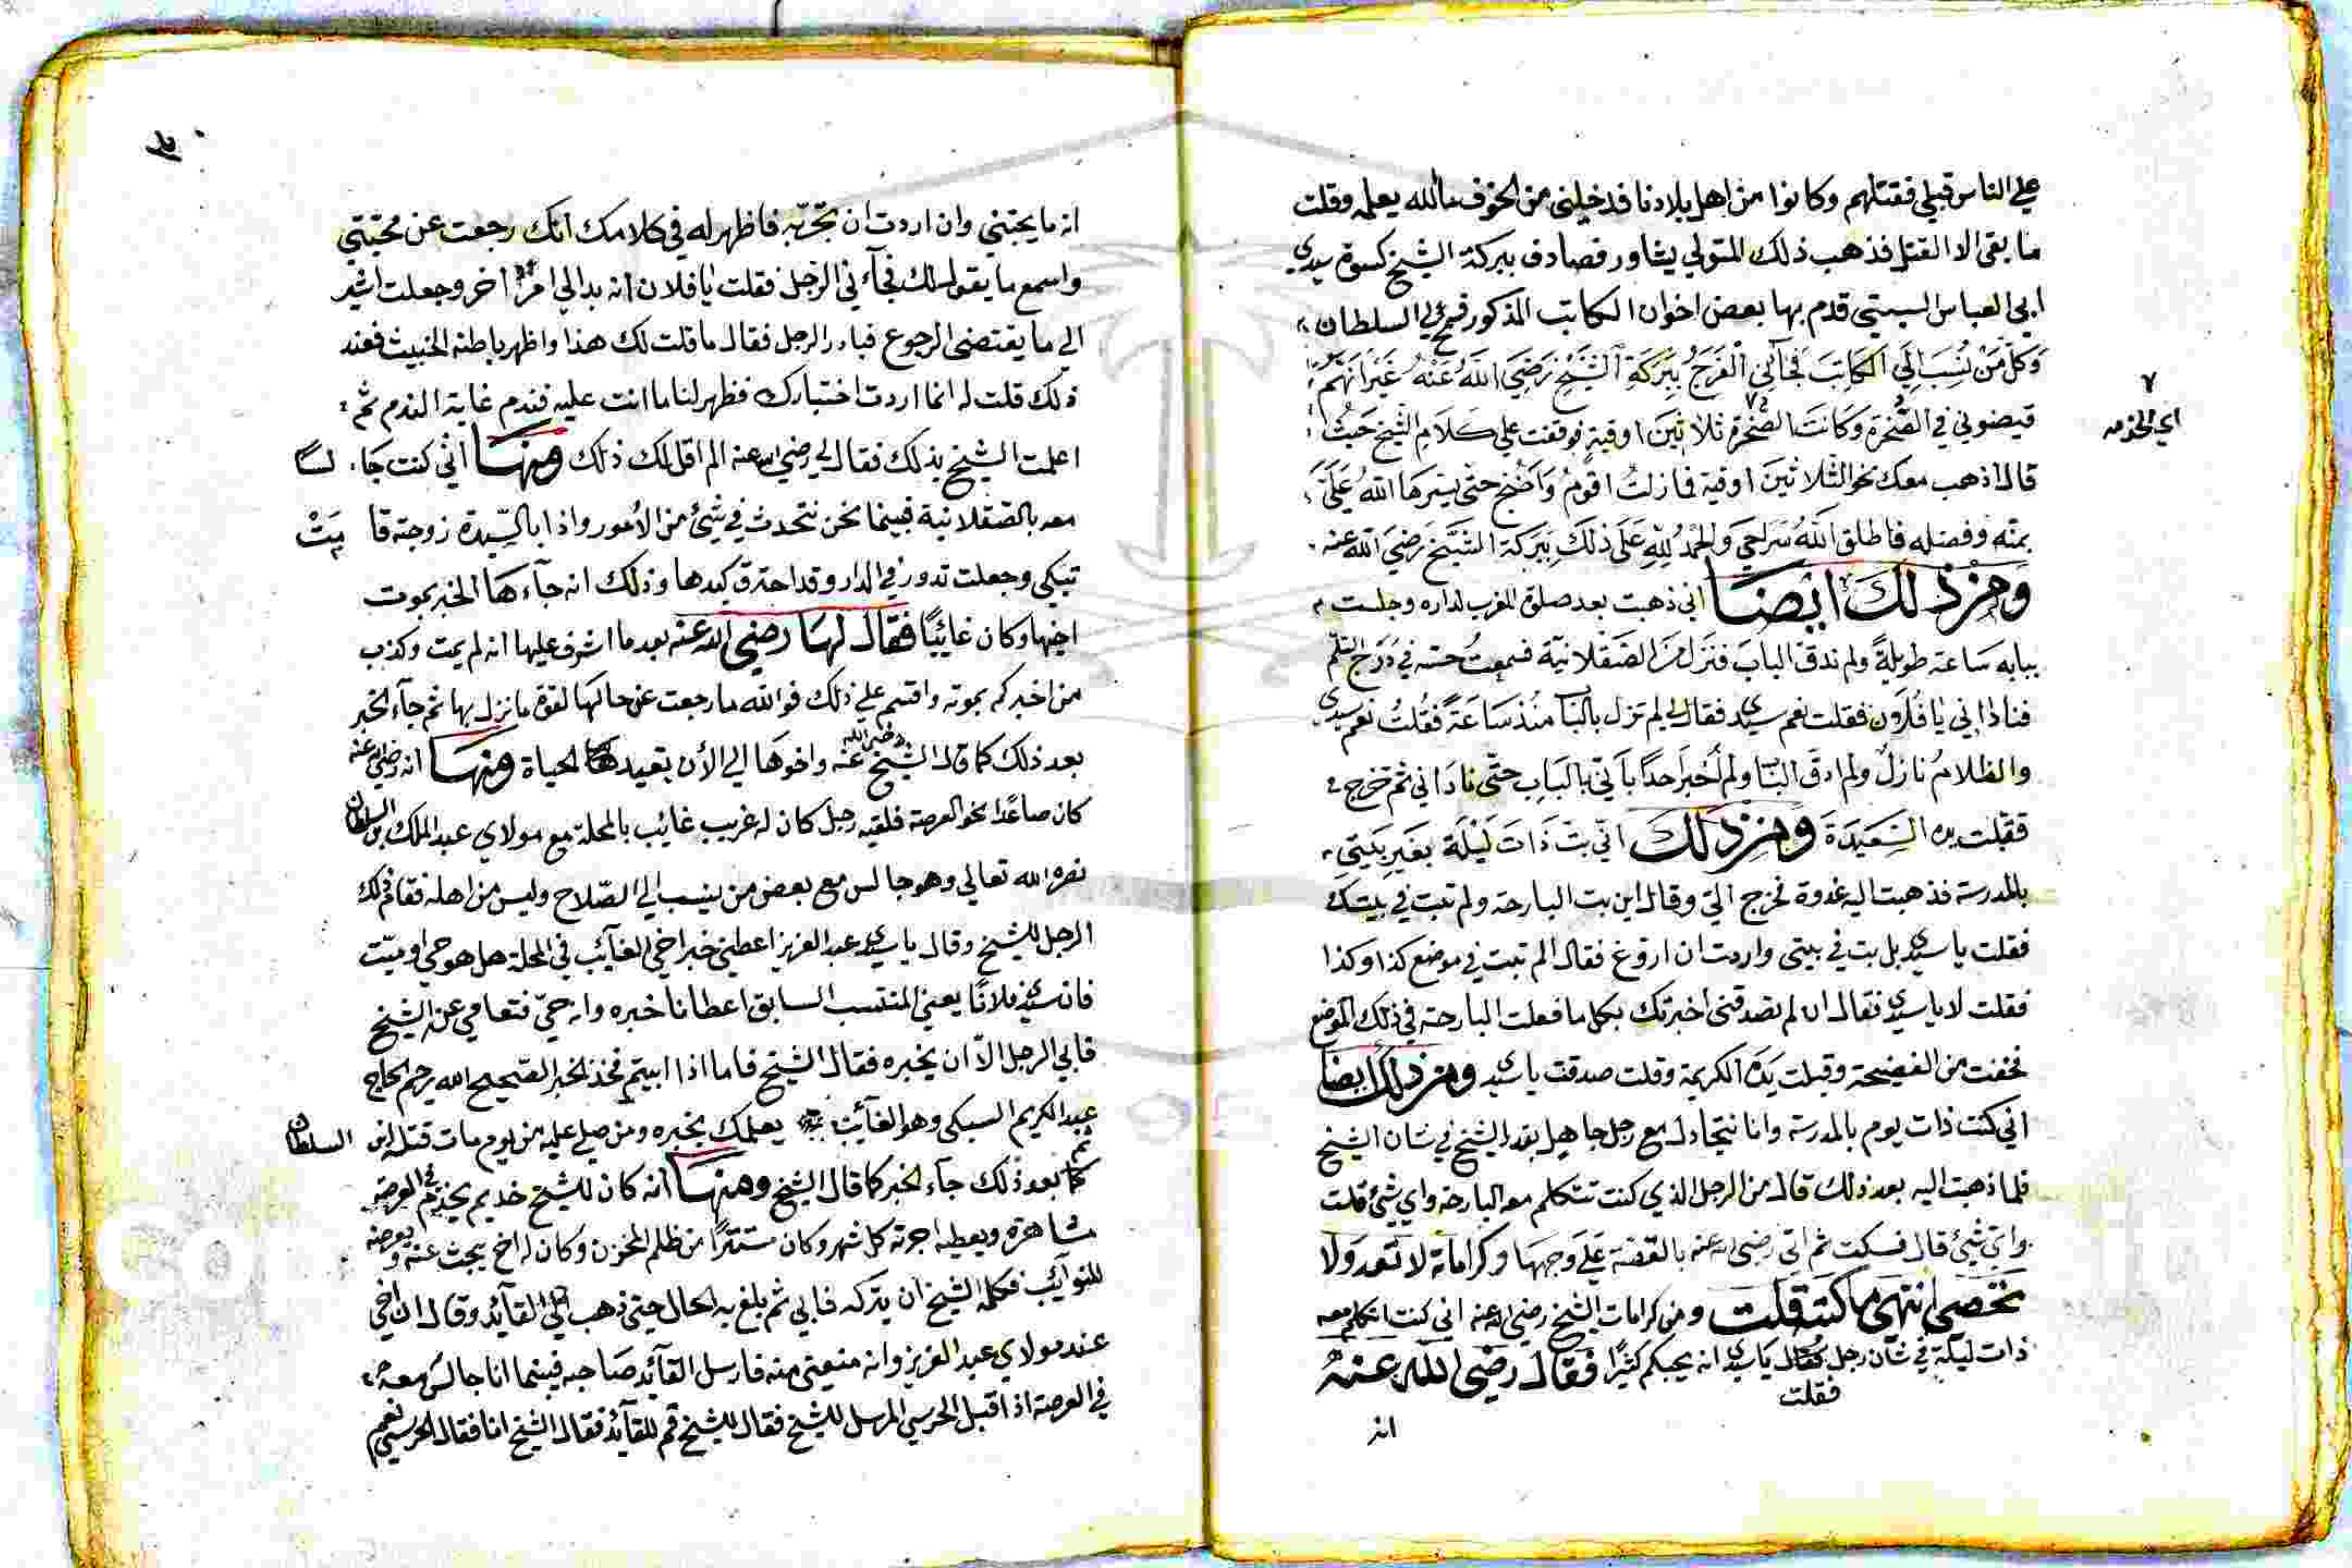 على الناس قبلي فقتلهم وكانوا من اهل بلادنا فدخلني من الخوف ما الله يعلمه وقلت
ما بقى الا القتل فذهب ذلك المتولي يشاور فصادف ببركة الشيخ كسوة سيدي
ابي العباس السبتي قدم بها بعض اخوان الكاتب المذكور فسمح لي السلطان
وَكل مَنْ نُسِبَ الي الكاتِبَ فجآنِي الْفَرَجُ بِبَرَكَةِ الشَّيْخِ رَضِيَ اللهُ عَنْهُ غَيْرَ انَهُمْ
قيضوني في الصَّخرة وَكَانَتْ الصَّخرة ثلاثينَ اوقية فوقفت علي كلَامِ الشَّيخ حَيْثُ
اي الخدمة
قال اذهب معك نحو الثلاثينَ اوقية فمازلتُ اقومُ وَاَضُجُ حتى يسرهَا اللهُ عَلَيَّ
بمنّه وفضله فاطلق اللهُ سَرَاحِي والحمدُ للهِ عَلَى ذلكَ بِبَرَكة الشَّيخ رَضيَ اللهُ عنه
وَمن ذلكَ ايضًا اني ذهبت بعد صلوة المغرب لداره وجلست
ببابه سَاعة طويلةً ولم ندق البابَ فنزل منَ الصَقلانيّة فسمعتُ حسه في دَرَج السّلم
فناداني يَا فُلَان فقلت نعم سيدي فقال لي لم تزل بالباب منذُ سَاعَةً فقُلتُ نعم سيدي
والظلامُ نازلٌ ولم ادق الباب ولم اُخبر اَحداً باَنّي بالبَابِ حتّى نادَاني ثم خرج
فقبلت يده السَّعِيدَةَ ومن ذلكَ اني بتّ ذَاتَ لَيْلَة بغَيرِ بَيْتِي
بالمدرسة فذهبت اليه غدوة فخرج اليّ وقال اين بت البارحة ولم تبت في بيتك
فقلت يا سيدي بل بت في بيتى واردت ان اروغ فقال الم تبت في موضع كذا وكذا
فقلت لا يا سيدي فقال ان لم تصدقنى اخبرتك بكل ما فعلت البارحة في ذلك الموضع
فخفت من الفضيحة وقبلت يَدَهُ الكريمة وقلت صدقت يا سيدي ومن ذلك ايضًا
اني كنت ذات يوم بالمدرسة وانا نتجادل مع رجل جاهل بقدر الشيخ في شان الشيخ
فلما ذهبت اليه بعد ذلك قال من الرجل الذي كنت تتكلم معه البارحة واي شيئ قلت
واي شيئ قال فسكت ثم اتى رضى الله عنه بالقصة عَلَي وَجهِهَا وكراماته لا تعد وَلا
تحصى انتهى ما كتبت قلت ومن كرامات الشيخ رضي الله عنه اني كنت اتكلم معه
ذات ليلة في شأن رجل فقلت يَا سيدي انه يحبكم كثيرًا فقال رضي الله عَنهُ
فقلت
انه
انه ما يحبني وان اردت ان تجرّبه فاظهر له في كلامك انك رجعت عن محبتي
واسمع ما يقول لك فجآءني الرجل فقلت يا فلان انه بدا لي امرٌ اخر وجعلت اشير
الي ما يقتضى الرجوع فبادر الرجل فقال ما قلت لك هذا واظهر باطنه الخبيث فعند
ذلك قلت له انما اردت اختبارك فظهر لنا ما انت عليه فندم غاية الندم ثم
اعلمت الشيخ بذلك فقال لي رضي الله عنه الم اقل لك ذلك ومنهَا انّي كنت جَالسًا
معه بالصقلانية فبينما نحن نتحدث في شيئ من الاُمور واذا بالسّيدة زوجته قامَتْ
تبكي وجعلت تدور في الدار وقد احترق كبدها وذلك انه جآءهَا الخبر بموت
اخيها وكان غائبًا فقال لهَا رضي الله عنه بعد ما اشرف عليها انه لم يمت وكذب
من اخبركم بموته واقسم علي ذلك فوالله ما رجعت عن حالهَا لقوة ما نزل بها ثم جآء الخبر
بعد ذلك كما قال الشيخ رضي الله عنه واخوهَا الي الأن بقيد الحياة ومنهَا انه رضي الله عنه
كان صاعدًا نحو العرصة فلقيه رجل كان له غريب غائب بالمحلة مع مولاي عبد الملك بن السلطان
نصره الله تعالي وهو جالس مع بعض من ينسب الي الصّلاح وليس من اهله فقام ذلك
الرجل للشيخ وقال يا سيدي عبد العزيز اعطني خبر اخي الغآئب في المحلة هل هو حي او ميّت
فان سيدي فلانًا يعني المنتسب السابق اعطانا خبره وانه حيّ فتعامي عنه الشيخ
فابي الرجل الاّ ان يخبره فقال الشيخ فاما اذا ابيتم فخذ الخبر الصّحيح الله يرحم الحاج
عبد الكريم السبكي وهو الغآئب يعلمك بخبره ومن صلى عليه من يوم مات قتله ابن السلطان
ثم بعد ذلك جآء الخبر كما قال الشيخ ومنهَا انه كان للشيخ خديم يخدم في العرصه
مشاهرة ويعطيه اجرته كل شهر وكان مستترًا من ظلم المخزن وكان له اخ يبحث عنه ويعرضه
للنوآئب فكلمه الشيخ ان يتركه فابي ثم بلغ به الحال حتى ذهب الي القآئد وقال ان اخي
عند مولاي عبد العزيز وانه منيعنى منه فارسل القآئد صَاحبه فبينما انا جالس معه
في العرصة اذ اقبل الحرسي المرسل للشيخ فقال للشيخ قم للقآئد فقال الشيخ انا فقال الحرسي نعم